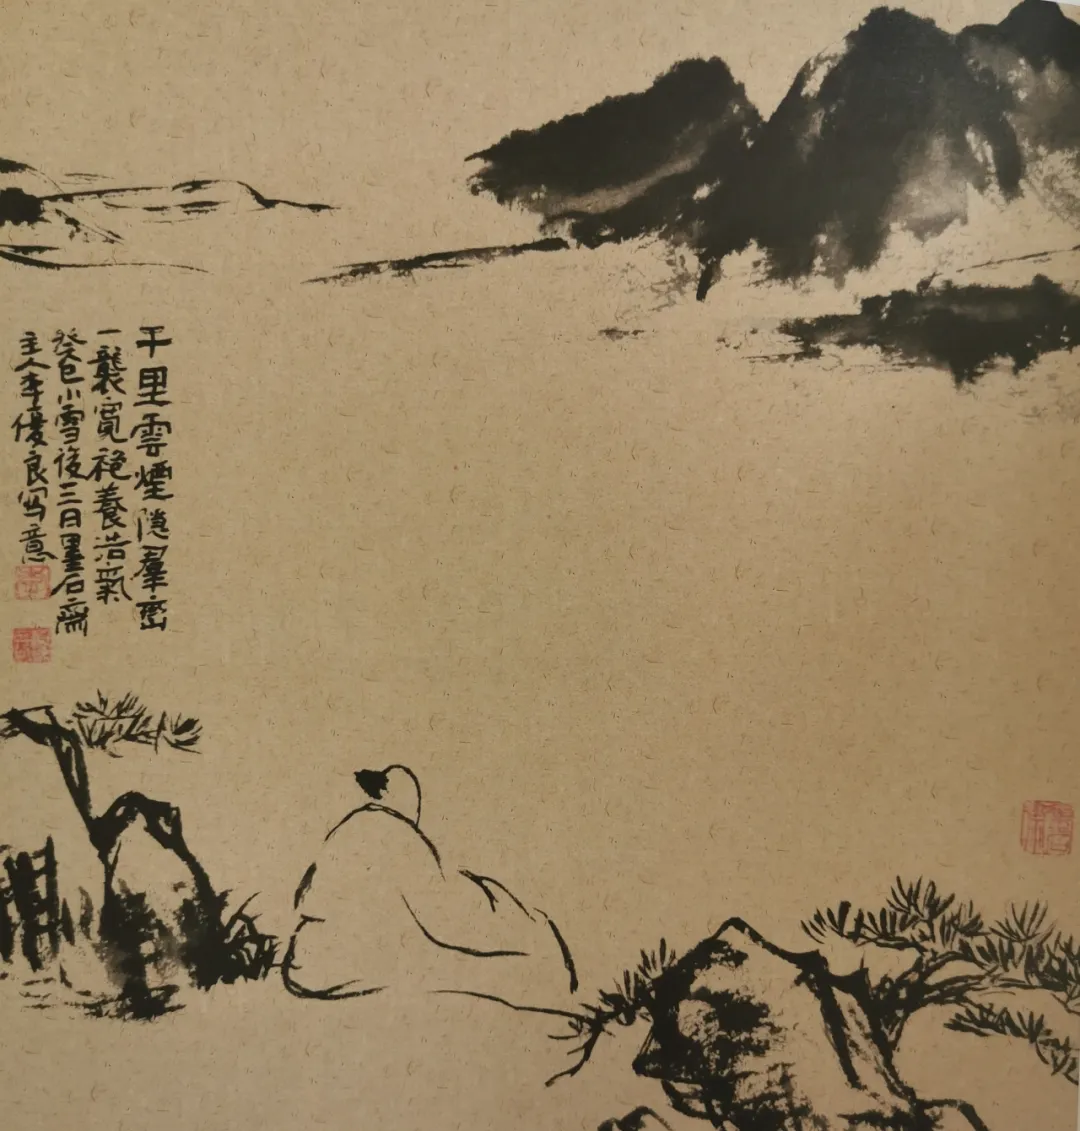 千里雲煙隐羣巒
一襲寬袍養浩氣
癸巳小雪後三日墨石齋
主人李優良写意